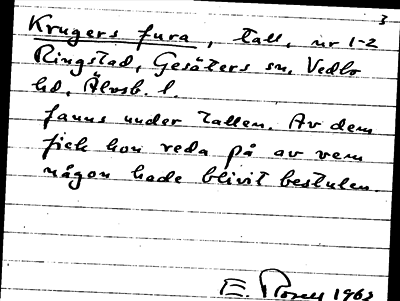 3
Krugers fura, tall, nr 1-2
Ringstad, Gesäters sn, Vedbo
hd, Älvsb. l.
fanns under tallen. Av dem
fick hon reda på av vem
någon hade blivit bestulen.
E. 1963